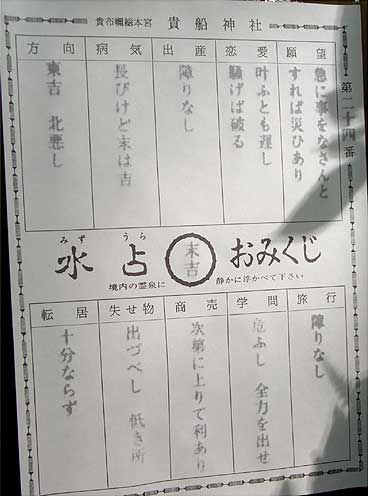 貴布禰総本宮 貴船神社
第二十四番
願望
急に事をなさんと
すれば災ひあり
恋愛
叶ふとも遅し
騒げば破る
出産
障りなし
病気
長びけど末は吉
方向
東吉 北悪し
みず うら
水占 末吉 おみくじ
境内の霊泉に 静かに浮かべて下さい
旅行
障りなし
学問
危ふし 全力を出せ
商売
次第に上りて利あり
失せ物
出づべし 低き所
転居
十分ならず